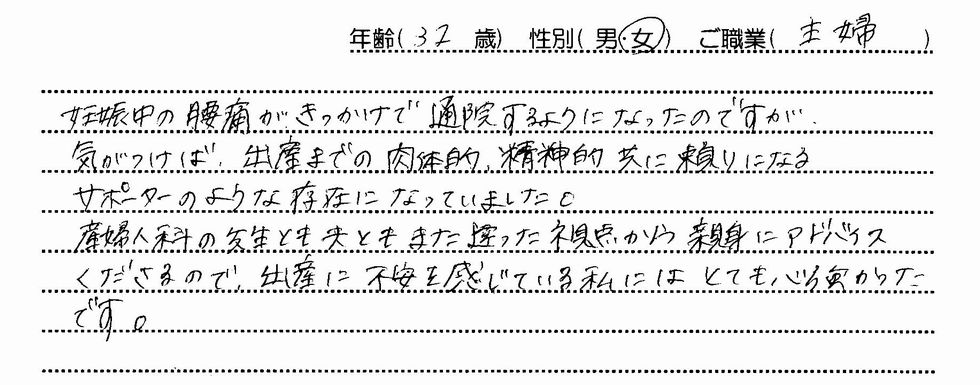 年齢( 32 歳) 性別( 男・女 ) ご職業( 主婦 )
妊娠中の腰痛がきっかけで通院するようになったのですが、
気がつけば、出産までの肉体的、精神的共に頼りになる
サポーターのような存在になっていました。
産婦人科の先生とも夫ともまた違った視点から親身にアドバイス
くださるので、出産に不安を感じている私にはとても心強かった
です。